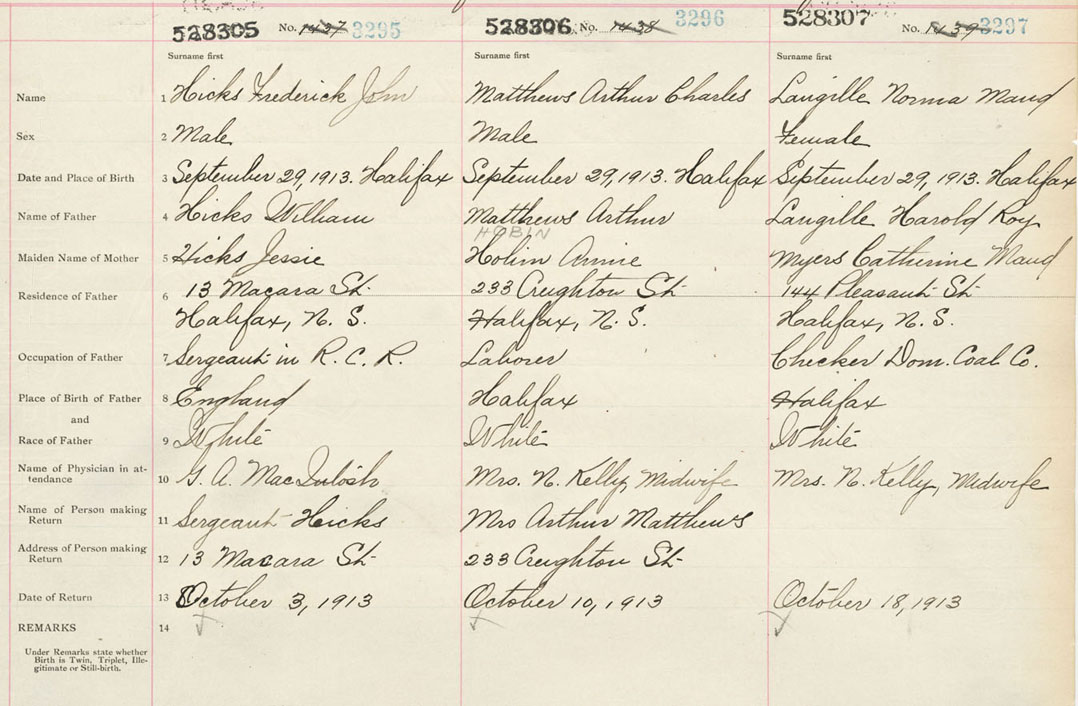 528305 No. 1437 3295 528306 No. 1438 3296 528307 No. 1439 3297
Surname first Surname first Surname first
Name 1 Hicks Frederick John Matthews Arthur Charles Langille Norma Maud
Sex 2 Male Male Female
Date and Place of Birth 3 September 29, 1913. Halifax September 29, 1913. Halifax September 29, 1913. Halifax
Name of Father 4 Hicks William Matthews Arthur Langille Harold Roy
HOBIN
Maiden Name of Mother 5 Hicks Jessie Hobin Annie Myers Catherine Maud
Residence of Father 6 13 Macara St. 233 Creighton St. 144 Pleasant St.
Halifax, N. S. Halifax, N. S. Halifax, N. S.
Occupation of Father 7 Sergeant in R. C. R. Laborer Checker Dom. Coal Co.
Place of Birth of Father 8 England Halifax Halifax
and
Race of Father 9 White White White
Name of Physician in at-
tendance 10 G. A. MacIntosh Mrs. N. Kelly, Midwife Mrs. N. Kelly, Midwife
Name of Person making
Return 11 Sergeant Hicks Mrs Arthur Matthews
Address of Person making
Return 12 13 Macara St. 233 Creighton St.
Date of Return 13 October 3, 1913 October 10, 1913 October 18, 1913
REMARKS 14
Under Remarks state whether
Birth is Twin, Triplet, Ille-
gitimate or Still-birth.